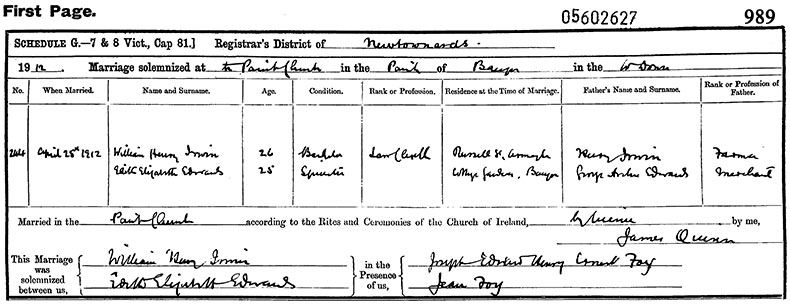 First Page.
05602627 989
SCHEDULE G.—7 & 8 Vict., Cap 81.] Registrar's District of Newtownards.
1912. Marriage solemnized at the Parish Church in the Parish of Bangor in the Co Down
No. When Married. Name and Surname. Age. Condition. Rank or Profession. Residence at the Time of Marriage. Father's Name and Surname. Rank or Profession of Father.
244 April 25th 1912 William Henry Irwin 26 Bachelor Law Clerk Russell St. Armagh Henry Irwin Farmer
Edith Elizabeth Edwards 25 Spinster College Gardens, Bangor George Arthur Edwards Merchant
Married in the Parish Church according to the Rites and Ceremonies of the Church of Ireland, by license by me,
James Quinn
This Marriage was solemnized between us, William Henry Irwin in the Presence of us, Joseph Edward Henry Foy
Edith Elizabeth Edwards Jean Foy